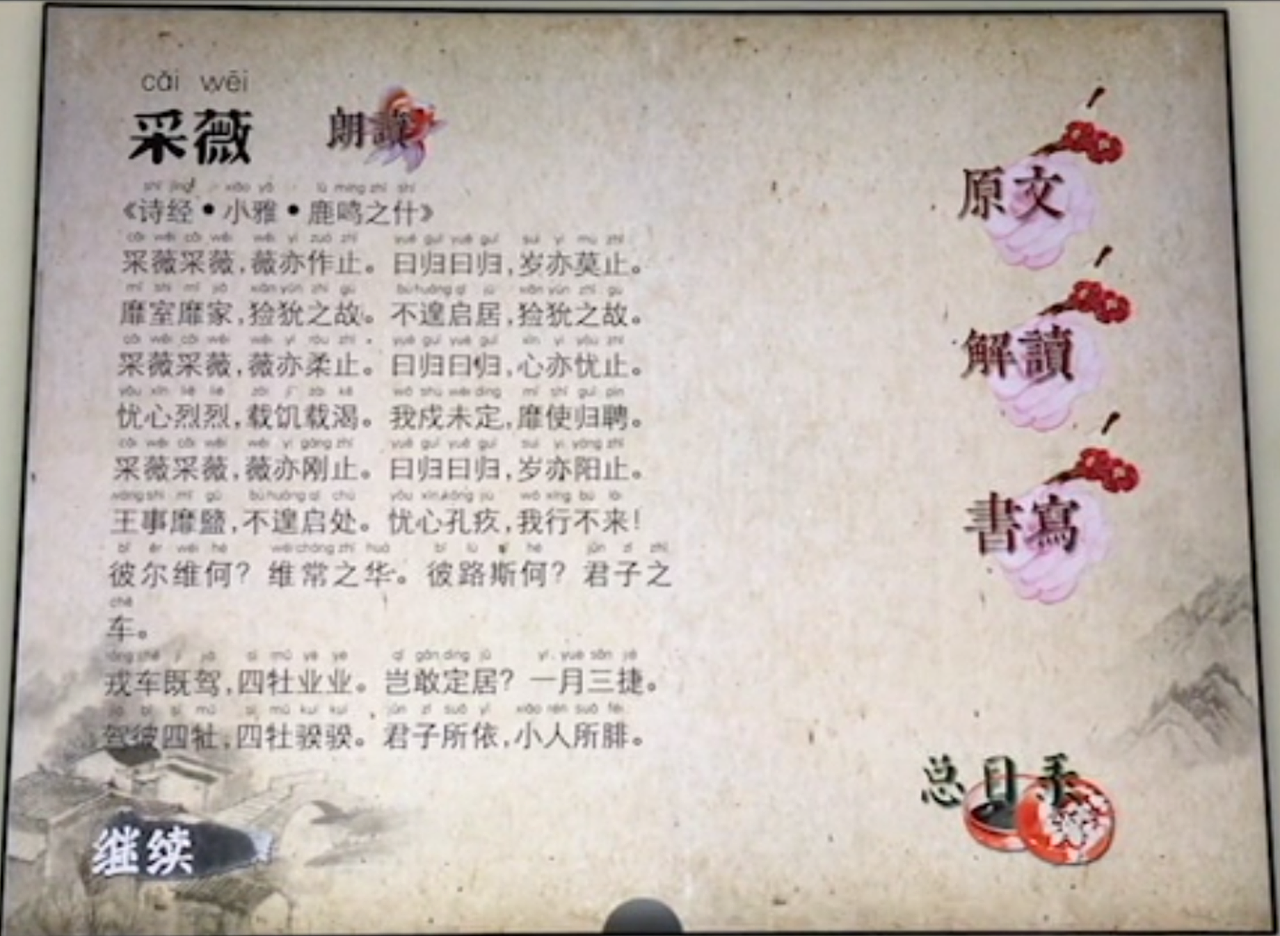 cǎi wēi
采薇
朗讀
shī jīng xiǎo yǎ lù míng zhī shí
《诗经•小雅•鹿鸣之什》
cǎi wēi cǎi wēi wēi yì zuò zhǐ yuē guī yuē guī suì yì mù zhǐ
采薇采薇,薇亦作止。曰归曰归,岁亦莫止。
mǐ shì mǐ jiā xiǎn yǔn zhī gù bù huáng qǐ jū xiǎn yǔn zhī gù
靡室靡家,猃狁之故。不遑启居,猃狁之故。
cǎi wēi cǎi wēi wēi yì róu zhǐ yuē guī yuē guī xīn yì yōu zhǐ
采薇采薇,薇亦柔止。曰归曰归,心亦忧止。
yōu xīn liè liè zài jī zài kě wǒ shù wèi dìng mǐ shǐ guī pìn
忧心烈烈,载饥载渴。我戍未定,靡使归聘。
cǎi wēi cǎi wēi wēi yì gāng zhǐ yuē guī yuē guī suì yì yáng zhǐ
采薇采薇,薇亦刚止。曰归曰归,岁亦阳止。
wáng shì mǐ gǔ bù huáng qǐ chǔ yōu xīn kǒng jiù wǒ xíng bù lái
王事靡盬,不遑启处。忧心孔疚,我行不来!
bǐ ěr wéi hé wéi cháng zhī huā bǐ lù sī hé jūn zǐ zhī
彼尔维何?维常之华。彼路斯何?君子之
chē
车。
róng chē jì jià sì mǔ yè yè qǐ gǎn dìng jū yí yuè sān jié
戎车既驾,四牡业业。岂敢定居?一月三捷。
jià bǐ sì mǔ sì mǔ kuí kuí jūn zǐ suǒ yī xiǎo rén suǒ féi
驾彼四牡,四牡骙骙。君子所依,小人所腓。
继续
原文
解讀
書寫
总目录